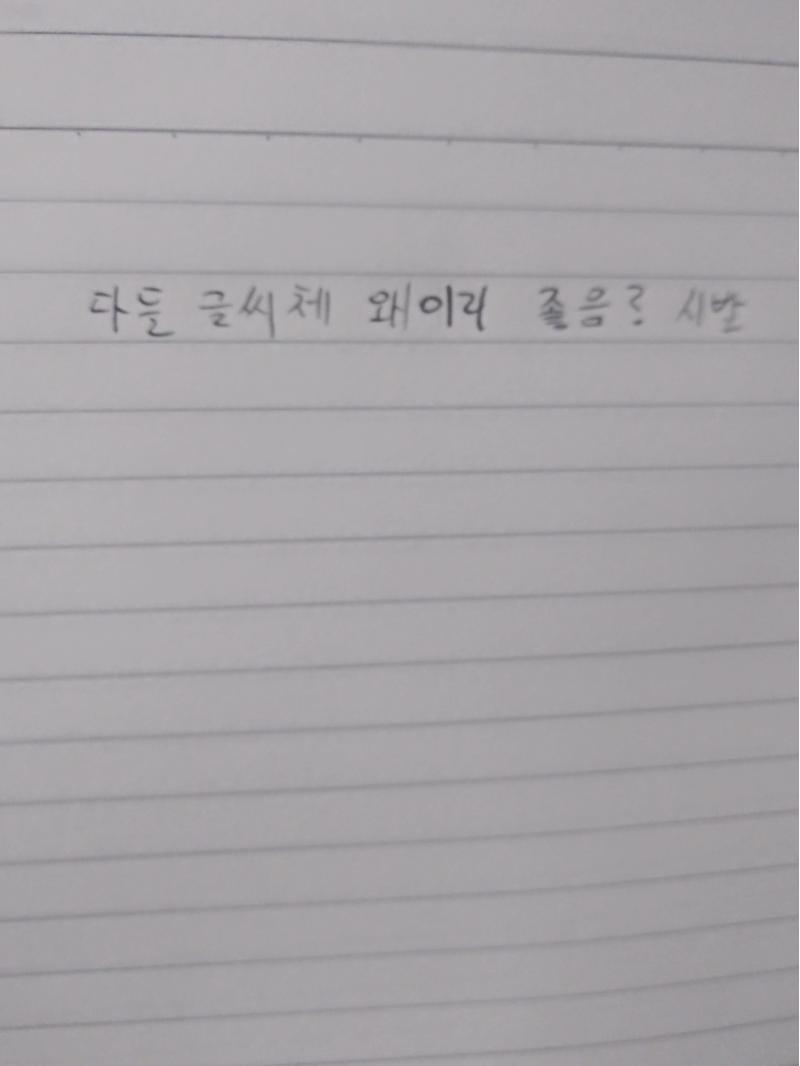 다들 글씨체 왜이리 좋음? 시발